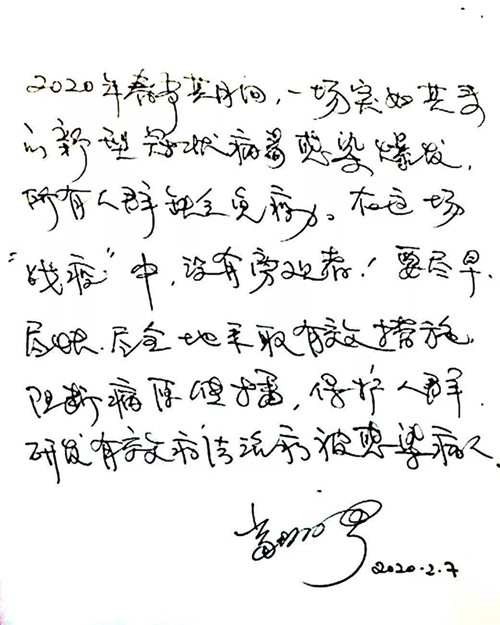 2020年春节其间,一场突如其来
的新型冠状病毒感染爆发,
所有人群缺乏免疫力。在这场
“战疫”中,没有旁观者!要尽早、
尽快、尽全地采取有效措施,
阻断病原传播,保护人群.
研发有效方法治疗被感染病人.
2020.2.7